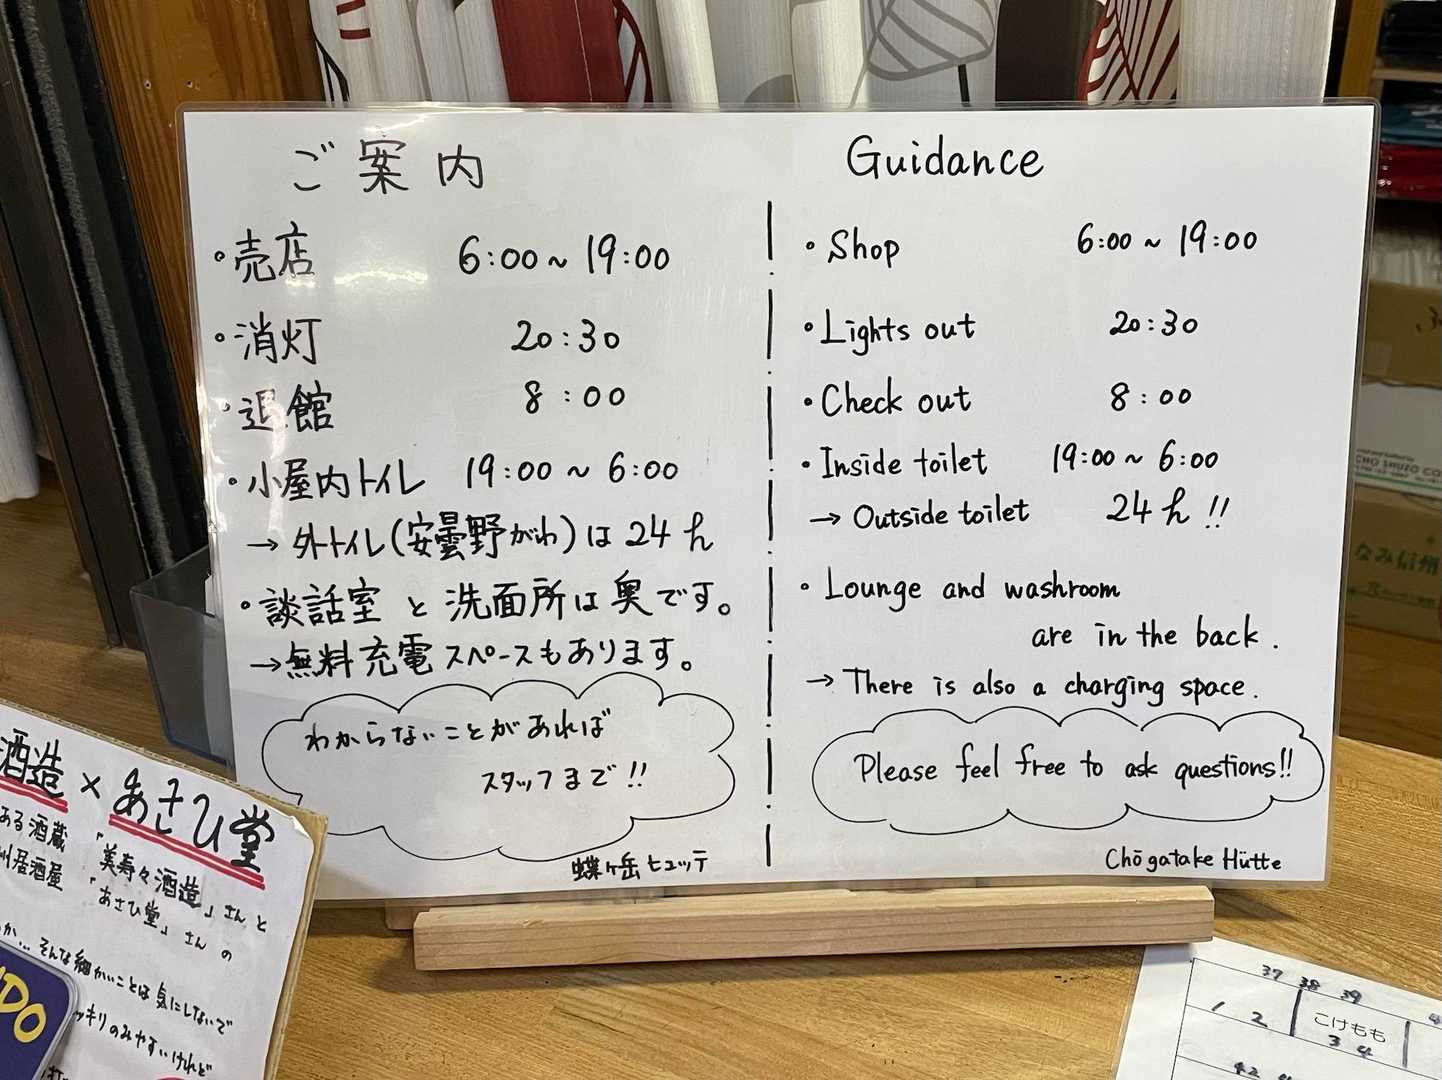 ご案内
・売店 6:00～19:00
・消灯 20:30
・退館 8:00
・小屋内トイレ 19:00～6:00
→外トイレ(安曇野がわ)は24h
・談話室と洗面所は奥です。
→無料充電スペースもあります。
わからないことがあれば
スタッフまで!!
蝶ヶ岳ヒュッテ
Guidance
・Shop 6:00～19:00
・Lights out 20:30
・Check out 8:00
・Inside toilet 19:00～6:00
→Outside toilet 24h!!
・Lounge and washroom
are in the back.
→There is also a charging space.
Please feel free to ask questions!!
Chōgatake Hütte
酒造×あさひ堂
ある酒蔵
州居酒屋
「美寿々酒造」さんと
「あさひ堂」さんの
か…そんな細かいことは気にしないで
ッキリのみやすいけれど
DO
37 38 39
1 2 こけもも
3 4
42
なみ信州